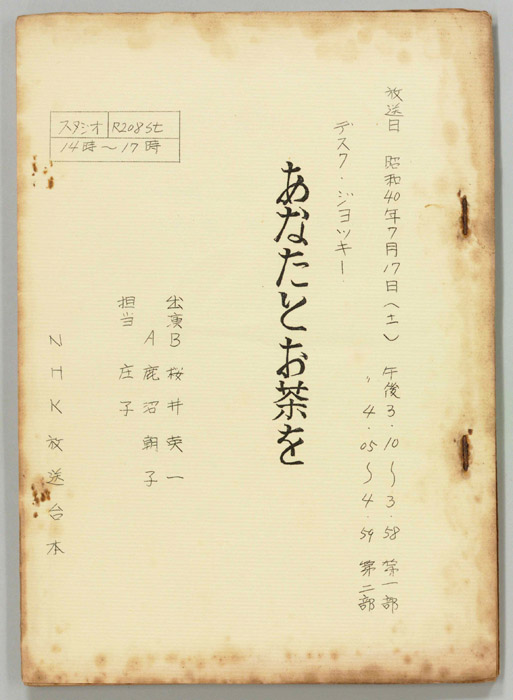 放送日 昭和40年7月17日(土) 午後3.10〜3.58 第一部
〃 4.05〜4.59 第二部
デスク・ジョッキー
あなたとお茶を
出演B 桜井英一
A 鹿沼朝子
担当 庄子
スタジオ R208St
14時〜17時
NHK放送台本